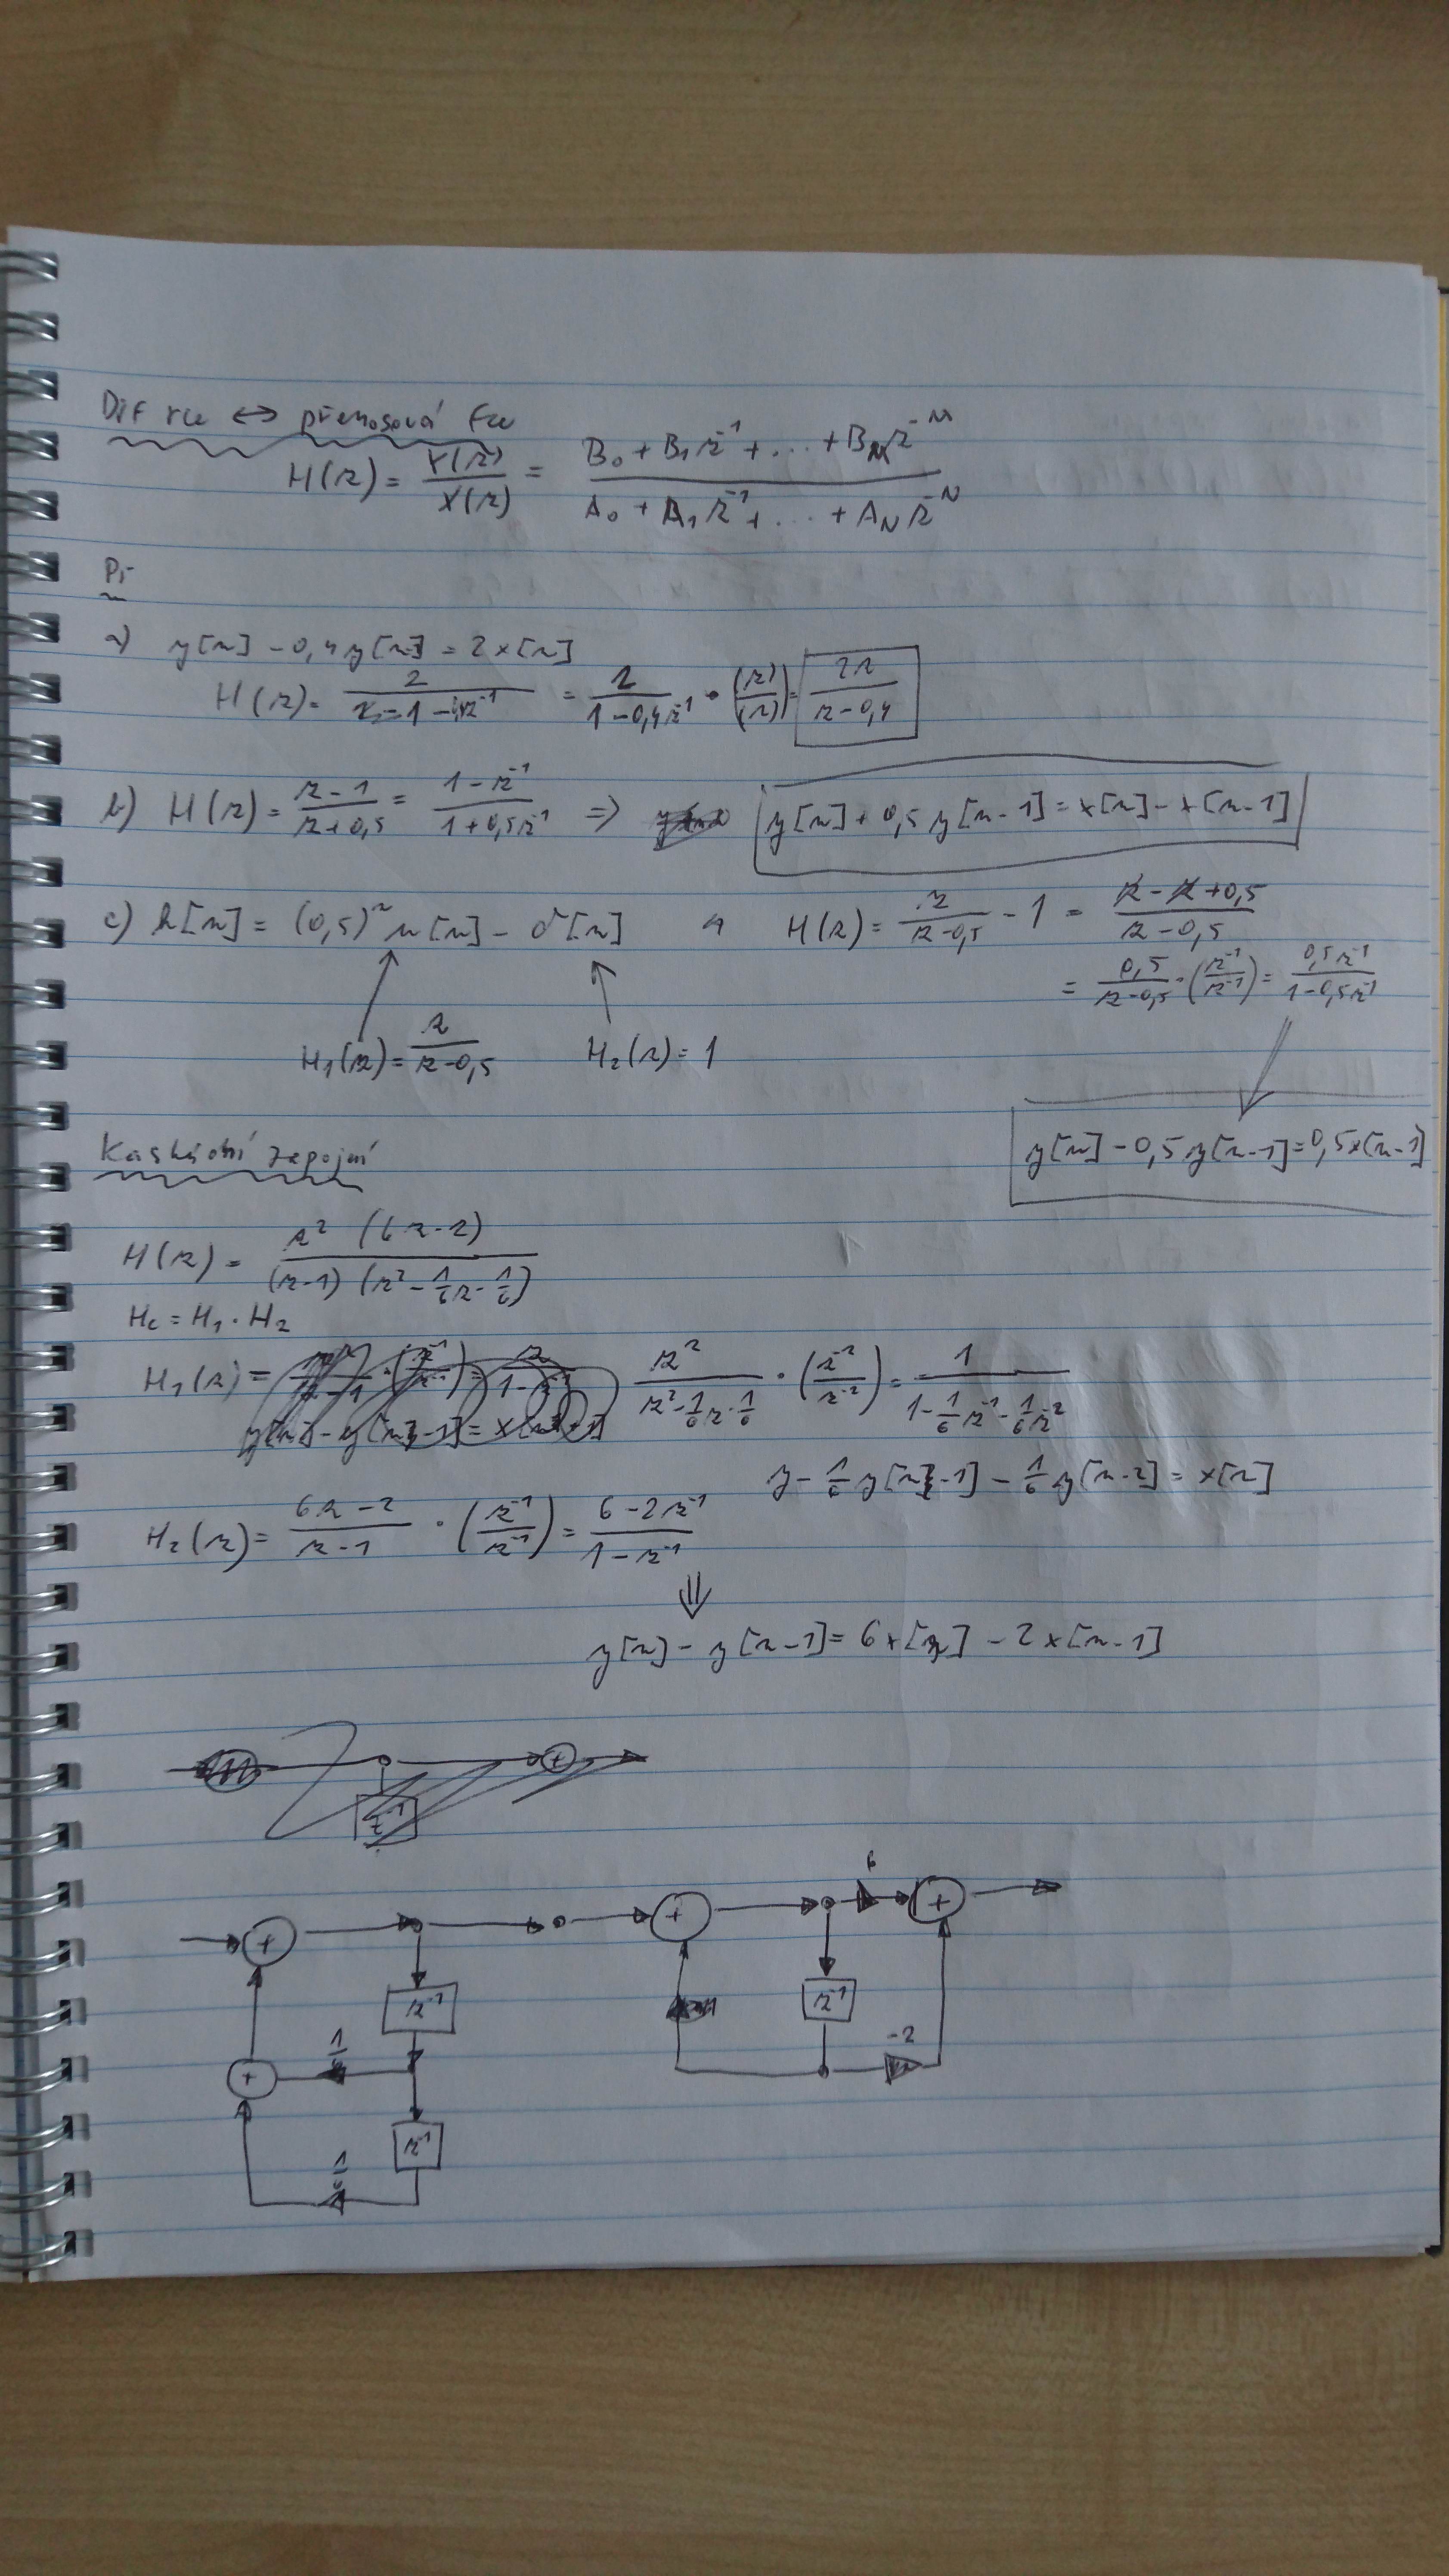 Dif rce ↔ přenosová fce
H(z) = Y(z)/X(z) = (B₀ + B₁z⁻¹ + ... + B_M z^-M)/(A₀ + A₁z⁻¹ + ... + A_N z^-N)
Př
a) y[n] - 0,4y[n-1] = 2x[n]
H(z) = 2/(1 - 0,4z⁻¹) = 2/(1 - 0,4z⁻¹) · (z)/(z) = 2z/(z - 0,4)
b) H(z) = (z - 1)/(z + 0,5) = (1 - z⁻¹)/(1 + 0,5z⁻¹) ⇒ y[n] + 0,5y[n-1] = x[n] - x[n-1]
c) h[n] = (0,5)ⁿ u[n] - δ[n] H(z) = z/(z - 0,5) - 1 = (z - z + 0,5)/(z - 0,5)
= 0,5/(z - 0,5) · (z⁻¹/z⁻¹) = 0,5z⁻¹/(1 - 0,5z⁻¹)
H₁(z) = z/(z - 0,5) H₂(z) = 1
y[n] - 0,5y[n-1] = 0,5x[n-1]
Kaskádní zapojení
H(z) = z² (6z - 2)/((z-1) (z² - 1/6z - 1/6))
Hc = H₁ · H₂
H₁(z) = z²/(z² - 1/6z - 1/6) · (z⁻²/z⁻²) = 1/(1 - 1/6z⁻¹ - 1/6z⁻²)
y - 1/6y[n-1] - 1/6y[n-2] = x[n]
H₂(z) = (6z - 2)/(z - 1) · (z⁻¹/z⁻¹) = (6 - 2z⁻¹)/(1 - z⁻¹)
⇓
y[n] - y[n-1] = 6x[n] - 2x[n-1]
z⁻¹
6
+ + +
z⁻¹ z⁻¹
1/6 -2
+
z⁻¹
1/6